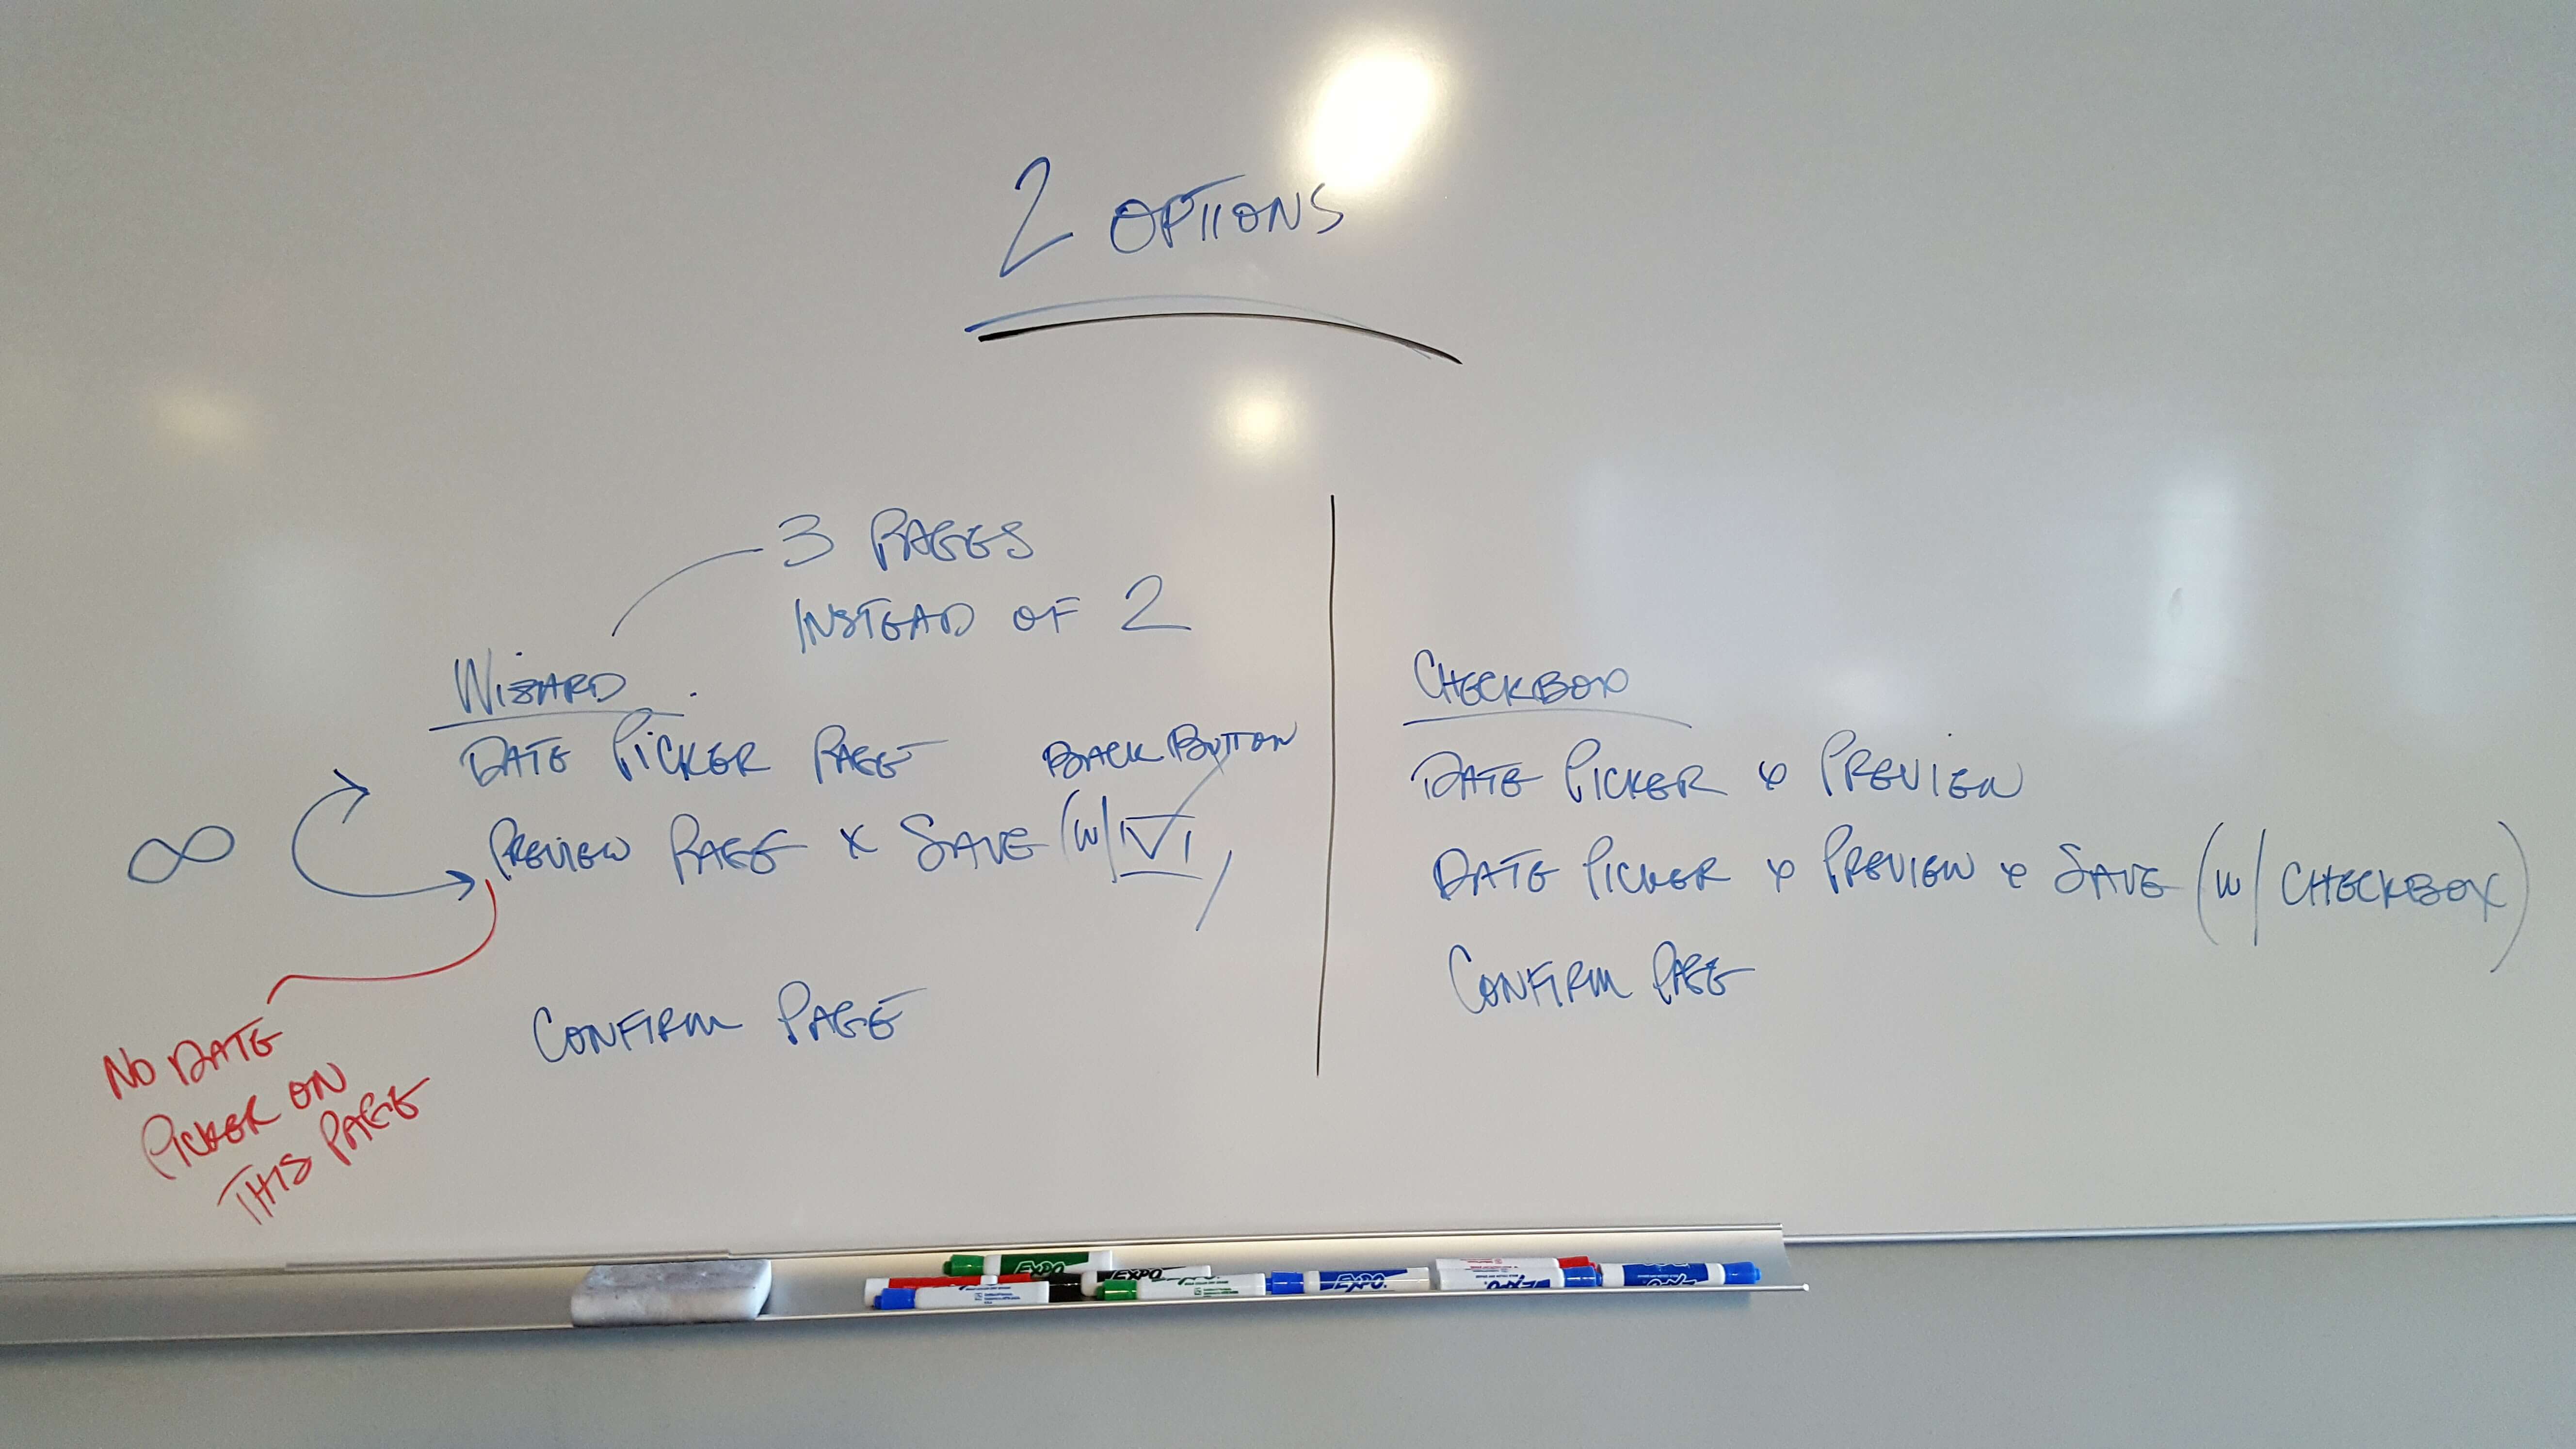 2 OPTIONS
3 PAGES
INSTEAD OF 2
WIZARD
DATE PICKER PAGE
BACK BUTTON
PREVIEW PAGE & SAVE (W/
CONFIRM PAGE
∞
NO DATE
PICKER ON
THIS PAGE
CHECKBOX
DATE PICKER & PREVIEW
DATE PICKER & PREVIEW & SAVE (W/ CHECKBOX)
CONFIRM PAGE
EXPO
EXPO
EXPO
EXPO
EXPO